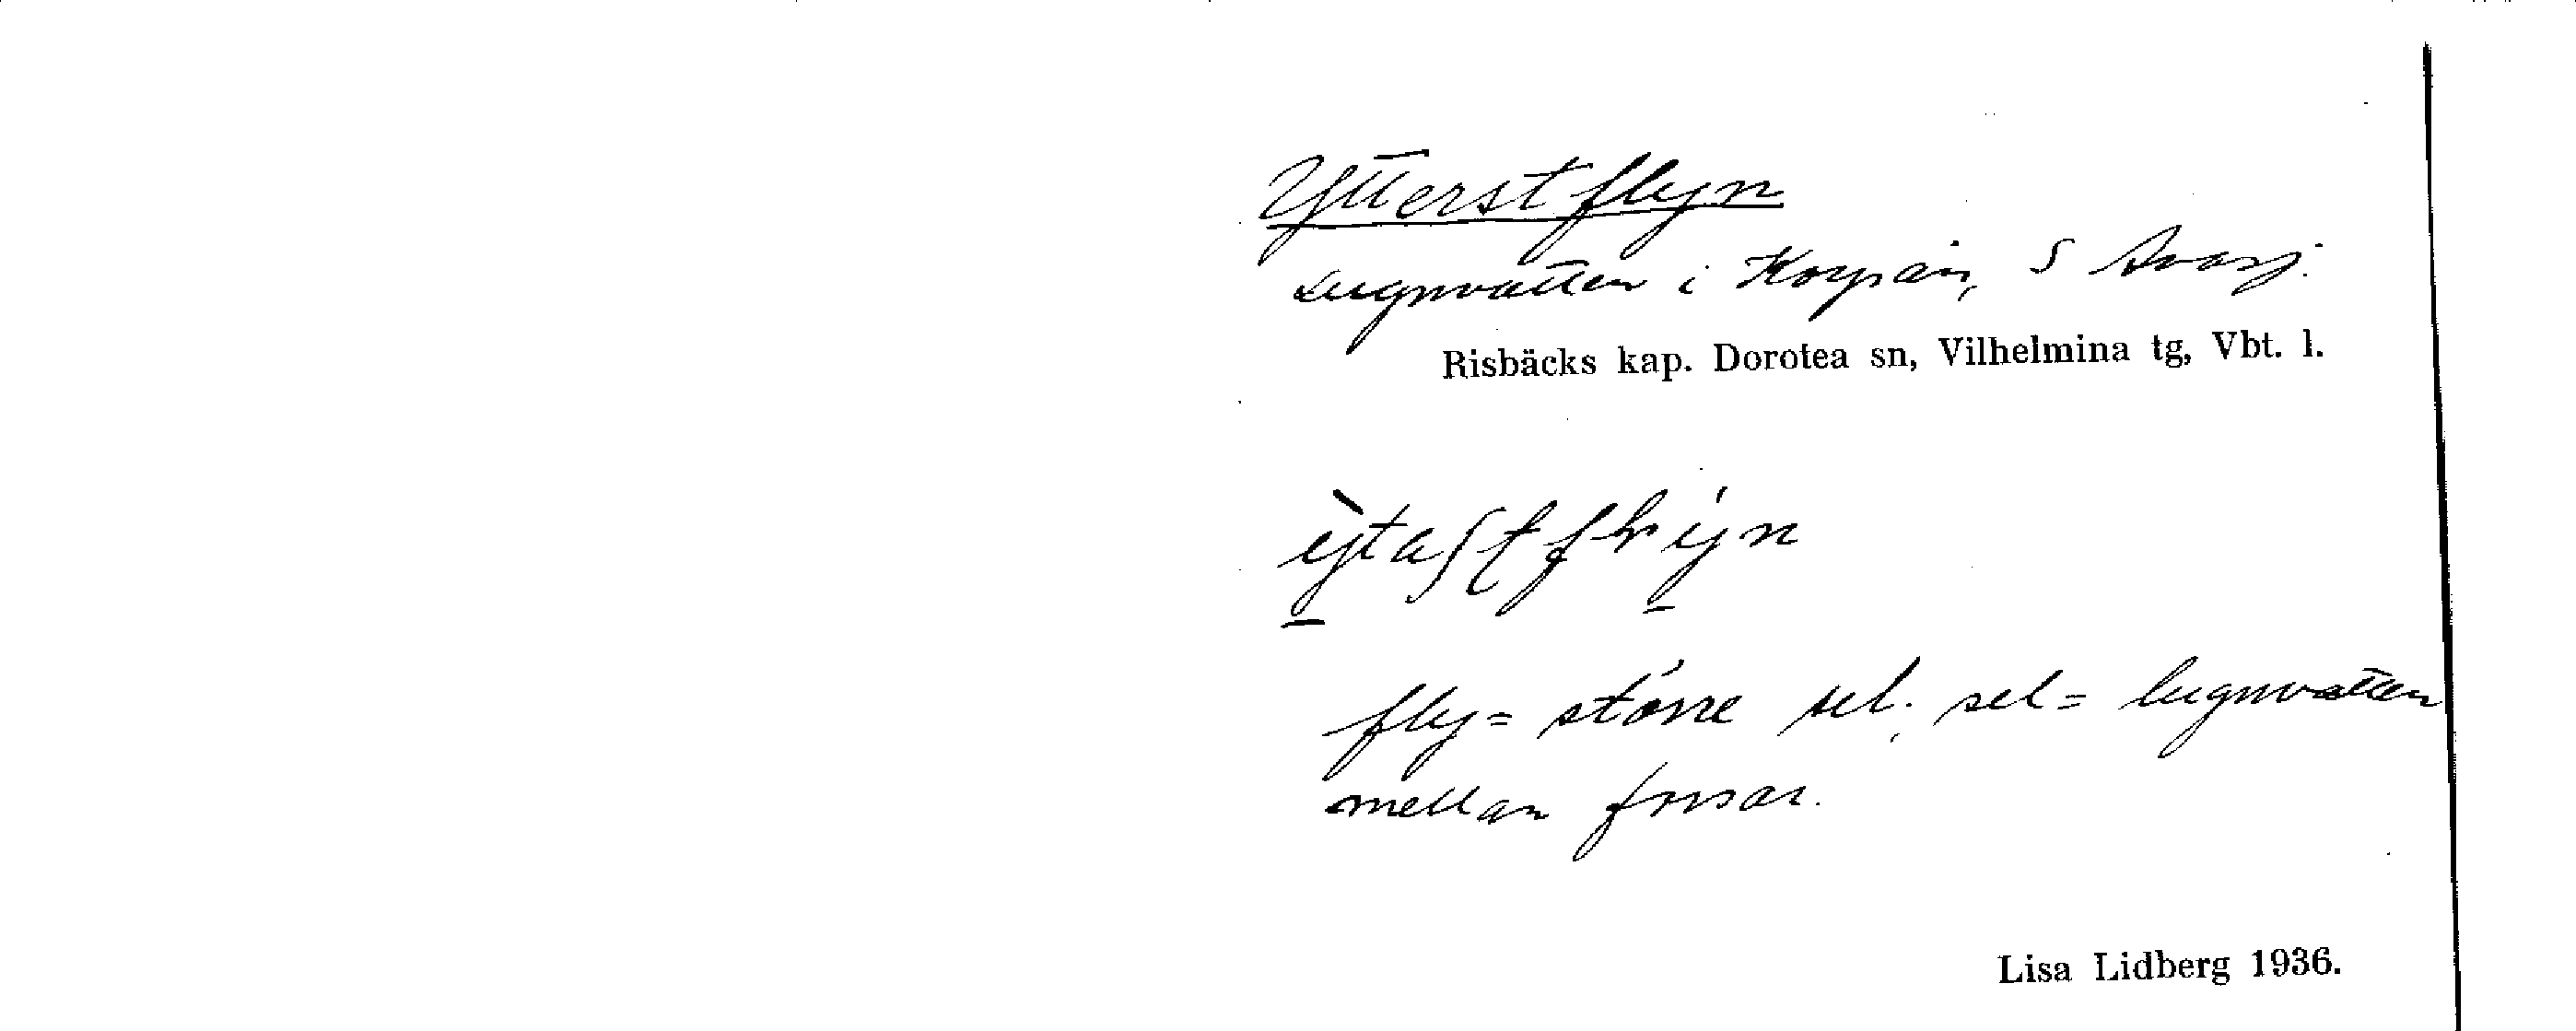 Ytterstflyn
Lugnvatten i Korpån, S Avasj.
Risbäcks kap. Dorotea sn, Vilhelmina tg, Vbt. l.
fly = större sel. sel = lugnvatten
mellan forsar.
Lisa Lidberg 1936.